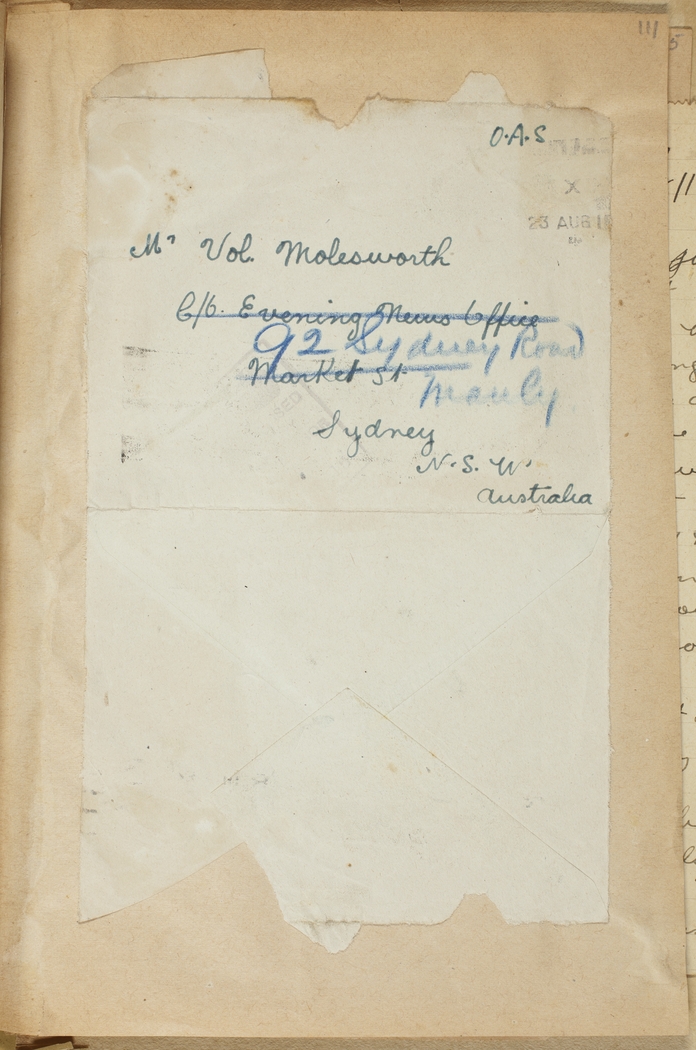 111
O.A.S
X
23 AUG 1
Mr Vol. Molesworth
C/o. Evening News Office
92 Sydney Road
Market St.
Manly
Sydney
N.S.W.
Australia